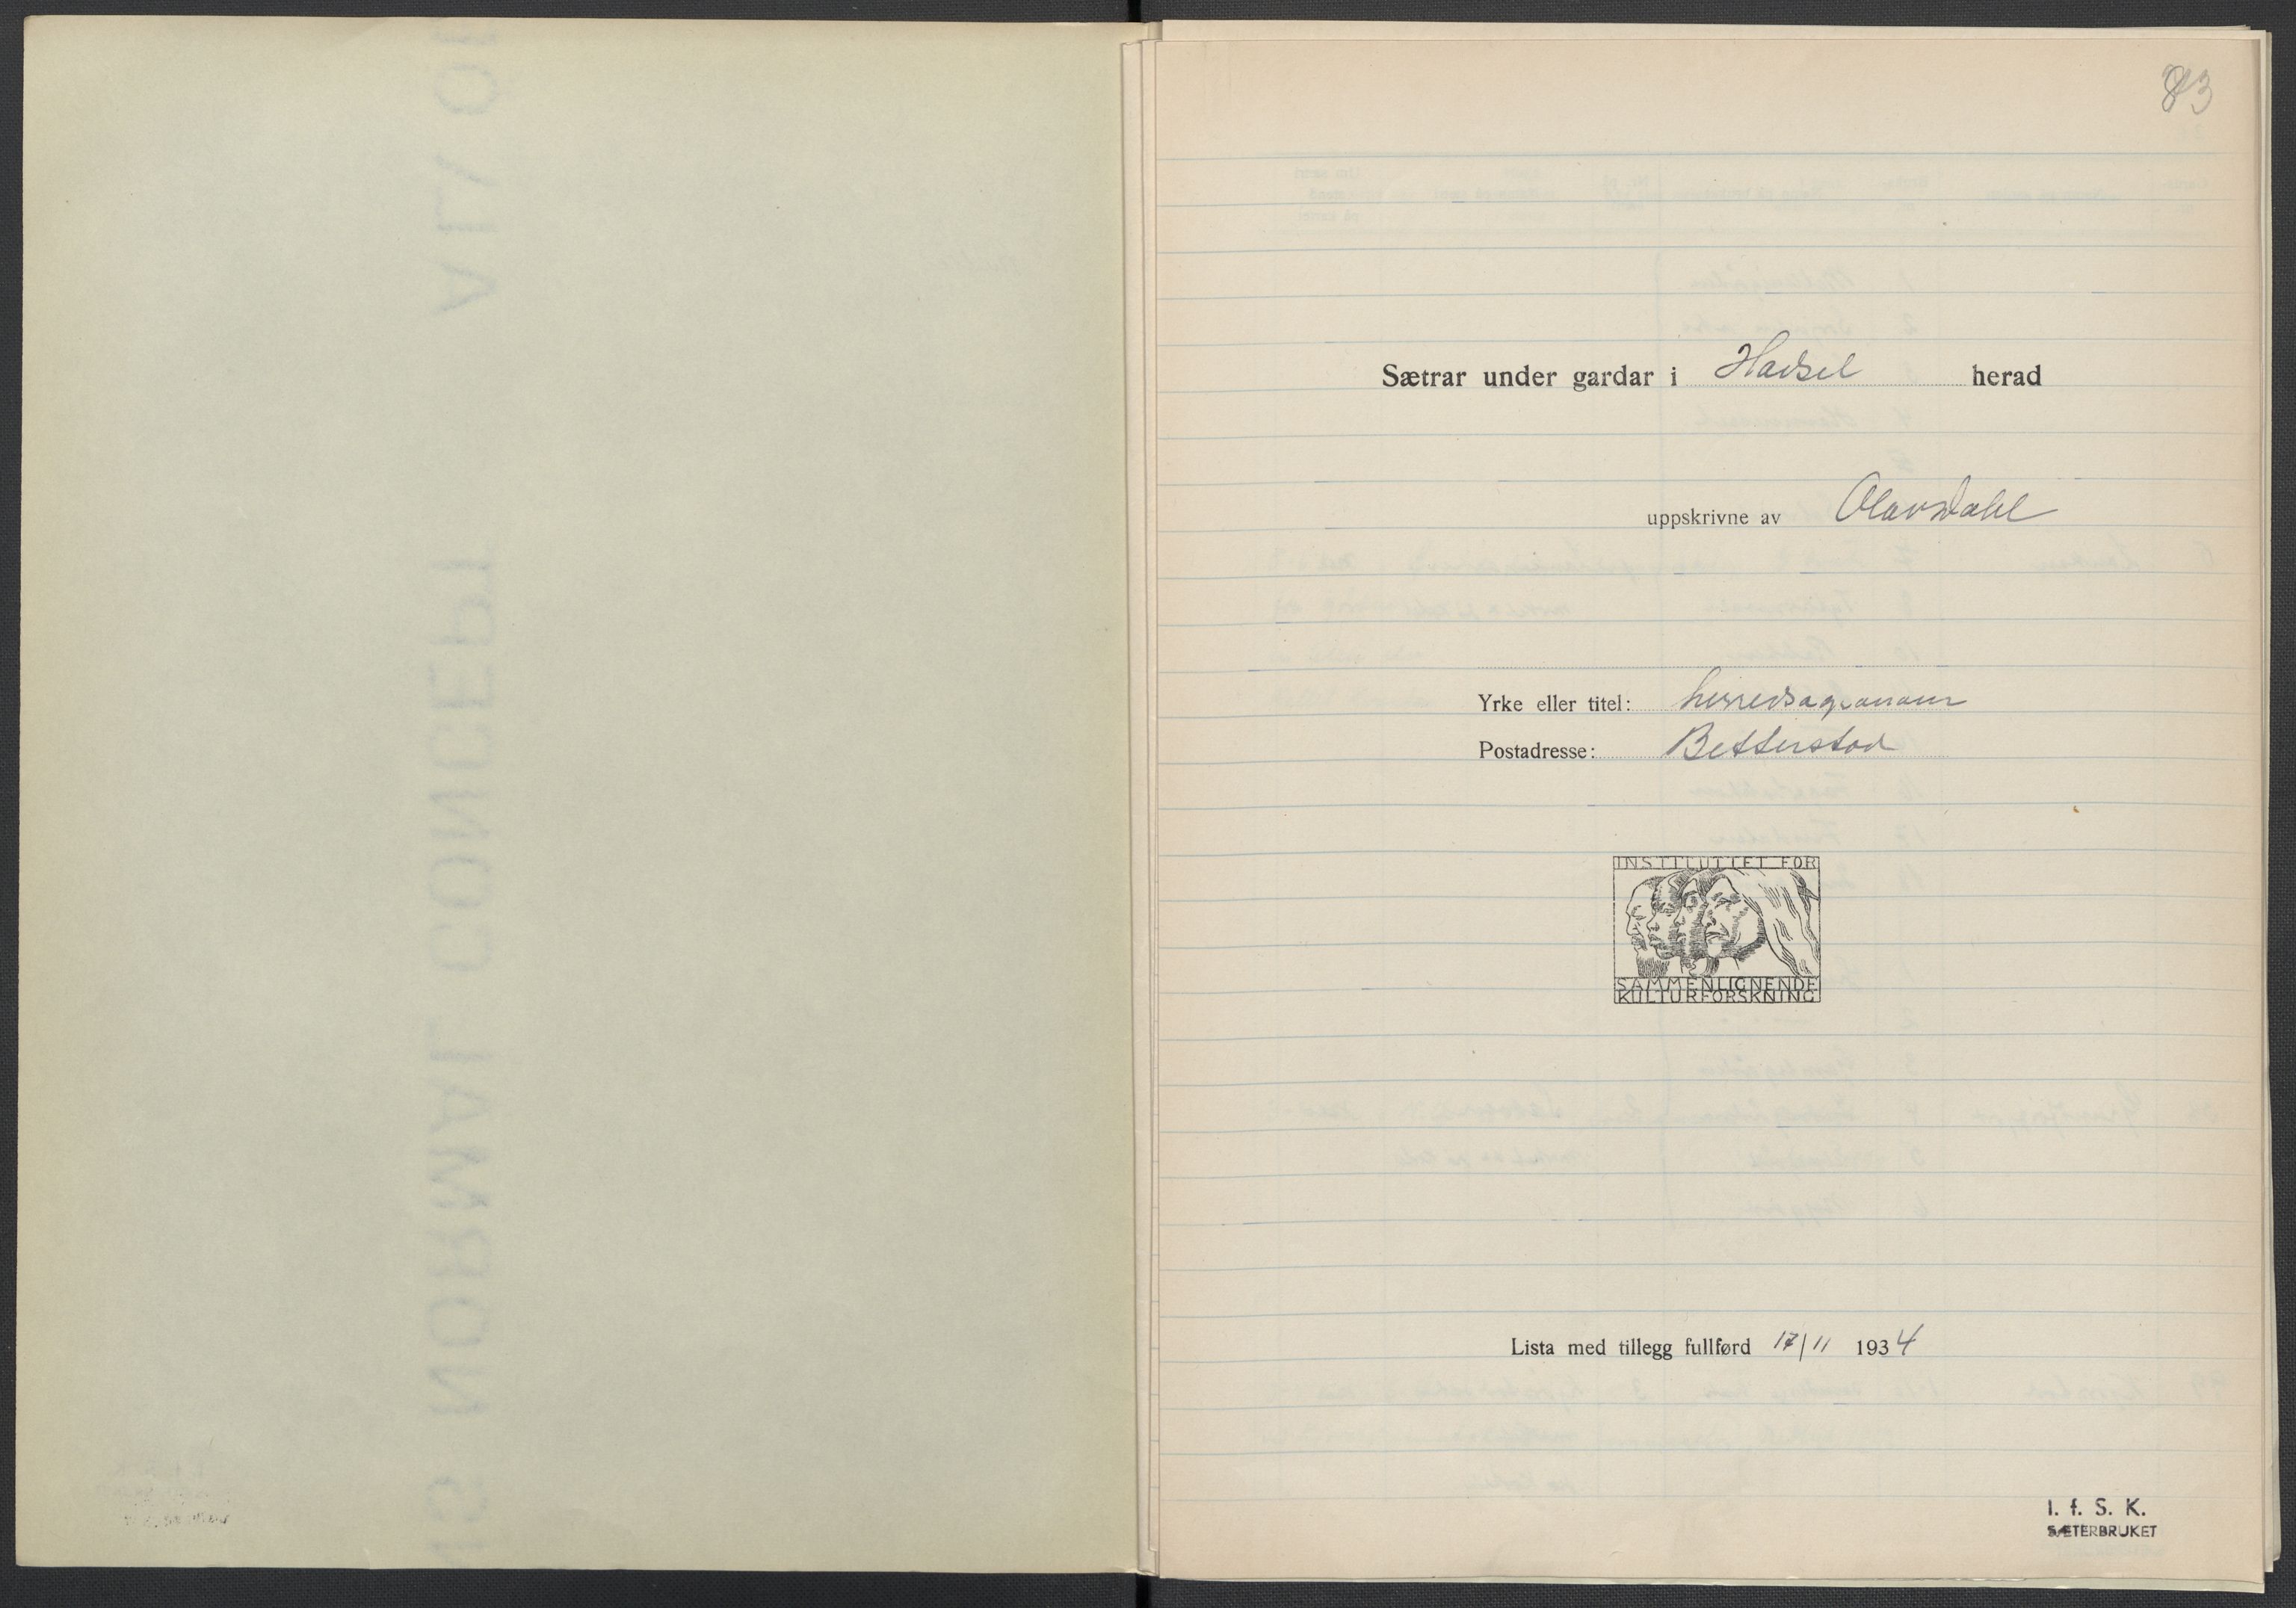 83
Sætrar under gardar i Hadsel herad
uppskrivne av Olav Dahl
Yrke eller titel: herredsagronom
Postadresse:
INSTITUTTET FOR
SAMMENLIGNENDE
KULTURFORSKNING
Lista med tillegg fullførd 17/11 1934
I. f. S. K.
SÆTERBRUKET
NORMAL CONCEPT